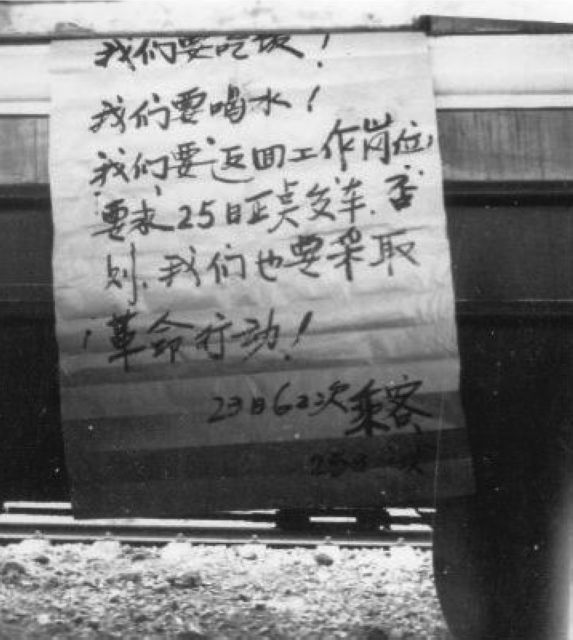 我们要吃饭！
我们要喝水！
我们要返回工作岗位，
要求25日正点发车.否
则.我们也要采取
革命行动！
23日62次乘客